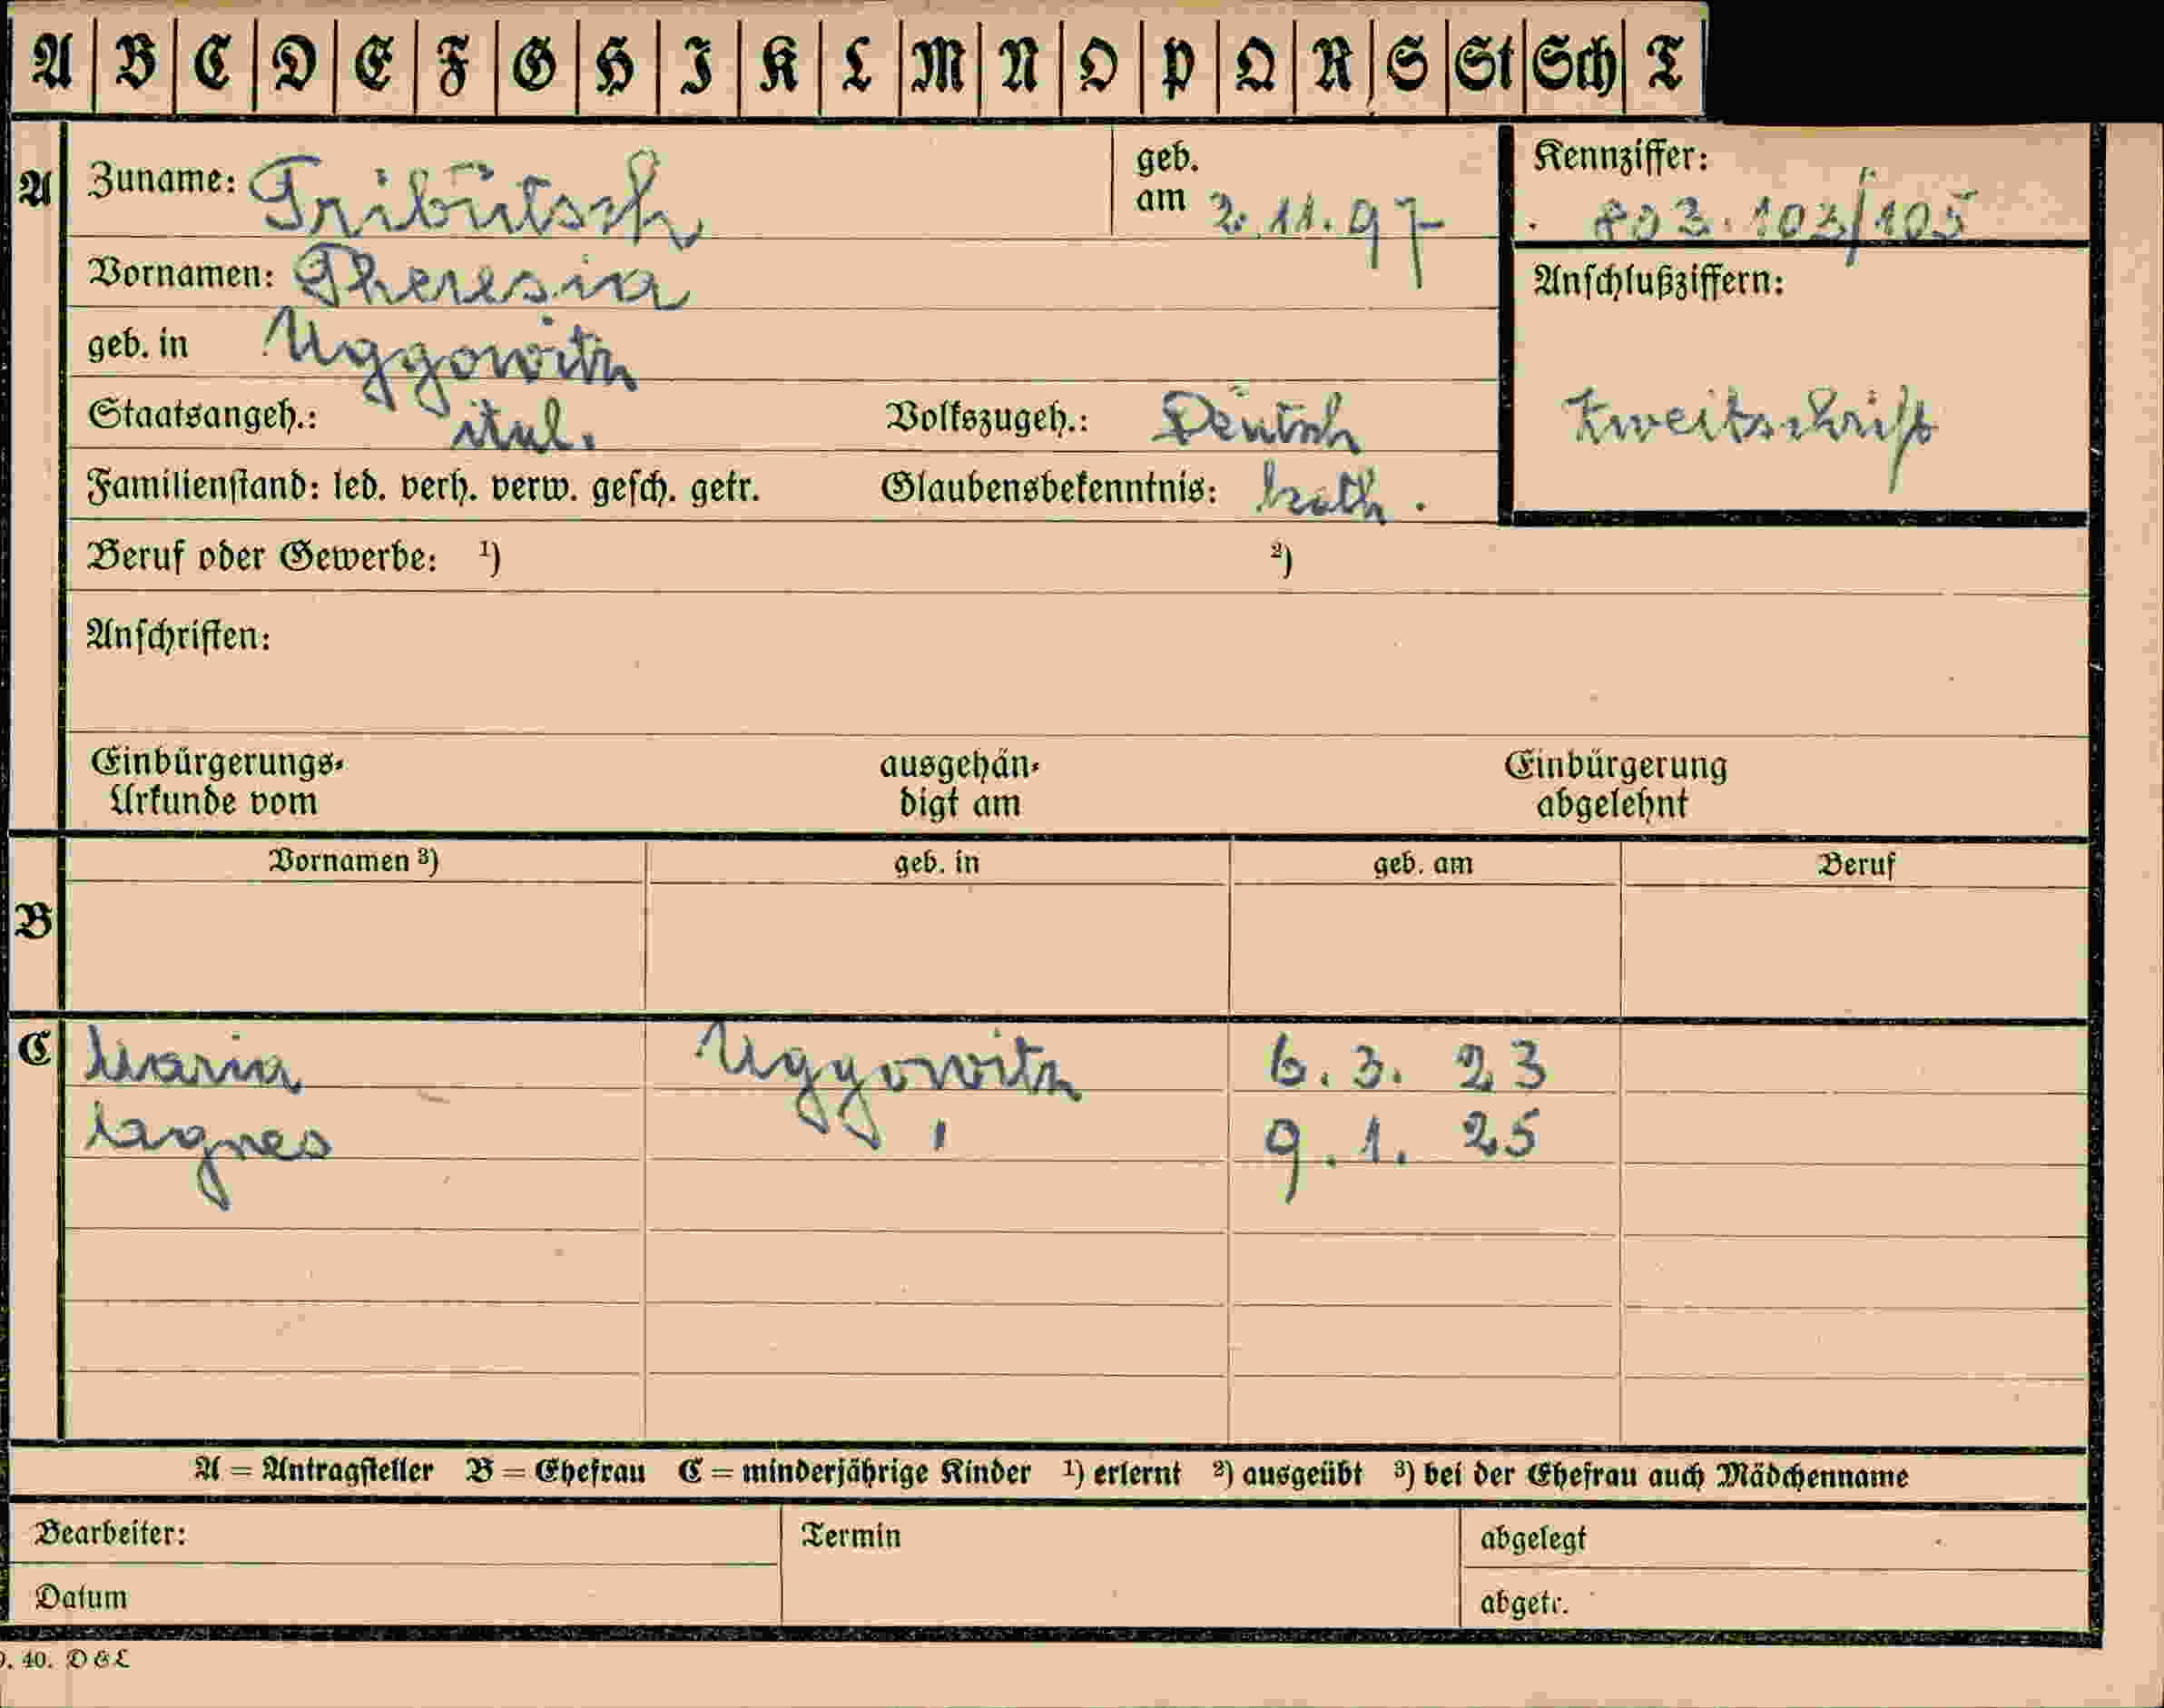 A B C D E F G H I K L M N O P Q R S St Sch T
A Zuname: Tributsch geb. am 2.11.97 Kennziffer: 803.103/105
Vornamen: Theresia Anschlußziffern:
geb. in Uggowitz
Staatsangeh.: ital. Volkszugeh.: Deutsch Zweitschrift
Familienstand: led. verh. verw. gesch. getr. Glaubensbekenntnis: kath.
Beruf oder Gewerbe: ¹) ²)
Anschriften:
Einbürgerungs- ausgehän- Einbürgerung
Urkunde vom digt am abgelehnt
Vornamen ³) geb. in geb. am Beruf
B
C Maria Uggowitz 6.3. 23
Agnes " 9.1. 25
A = Antragsteller B = Ehefrau C = minderjährige Kinder ¹) erlernt ²) ausgeübt ³) bei der Ehefrau auch Mädchenname
Bearbeiter: Termin abgelegt
Datum abgetr.
9. 40. D & L